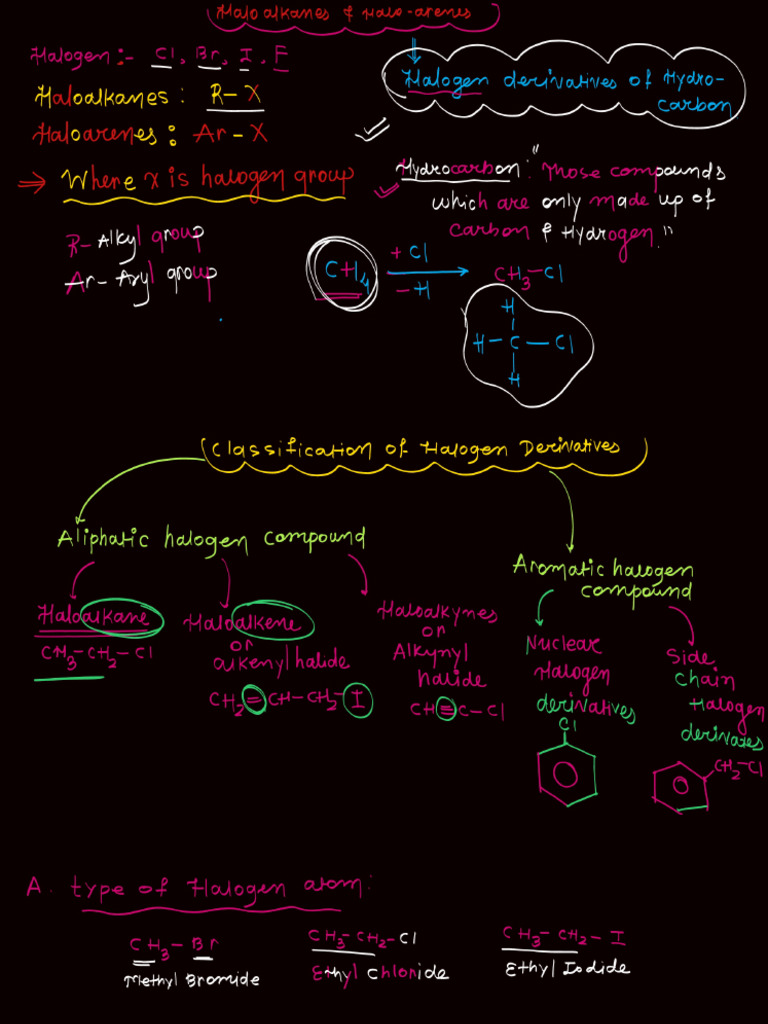 Haloalkanes & Halo-arenes
Halogen :- Cl, Br, I, F
Haloalkanes : R-X
Haloarenes : Ar-X
⇒ Where X is halogen group
R- Alkyl group
Ar- Aryl group
Halogen derivatives of Hydro-
carbon
Hydrocarbon: "Those compounds
which are only made up of
carbon & Hydrogen."
CH₄ + Cl - H → CH₃-Cl
H
H-C-Cl
H
Classification of Halogen Derivatives
Aliphatic halogen compound
Haloalkane
CH₃-CH₂-Cl
Haloalkene
or
alkenyl halide
CH₂=CH-CH₂-I
Haloalkynes
or
Alkynyl
halide
CH≡C-Cl
Aromatic halogen
compound
Nuclear
Halogen
derivatives
Cl
Side
chain
Halogen
derivates
CH₂-Cl
A. type of Halogen atom:
CH₃-Br
Methyl Bromide
CH₃-CH₂-Cl
Ethyl chloride
CH₃-CH₂-I
Ethyl Iodide